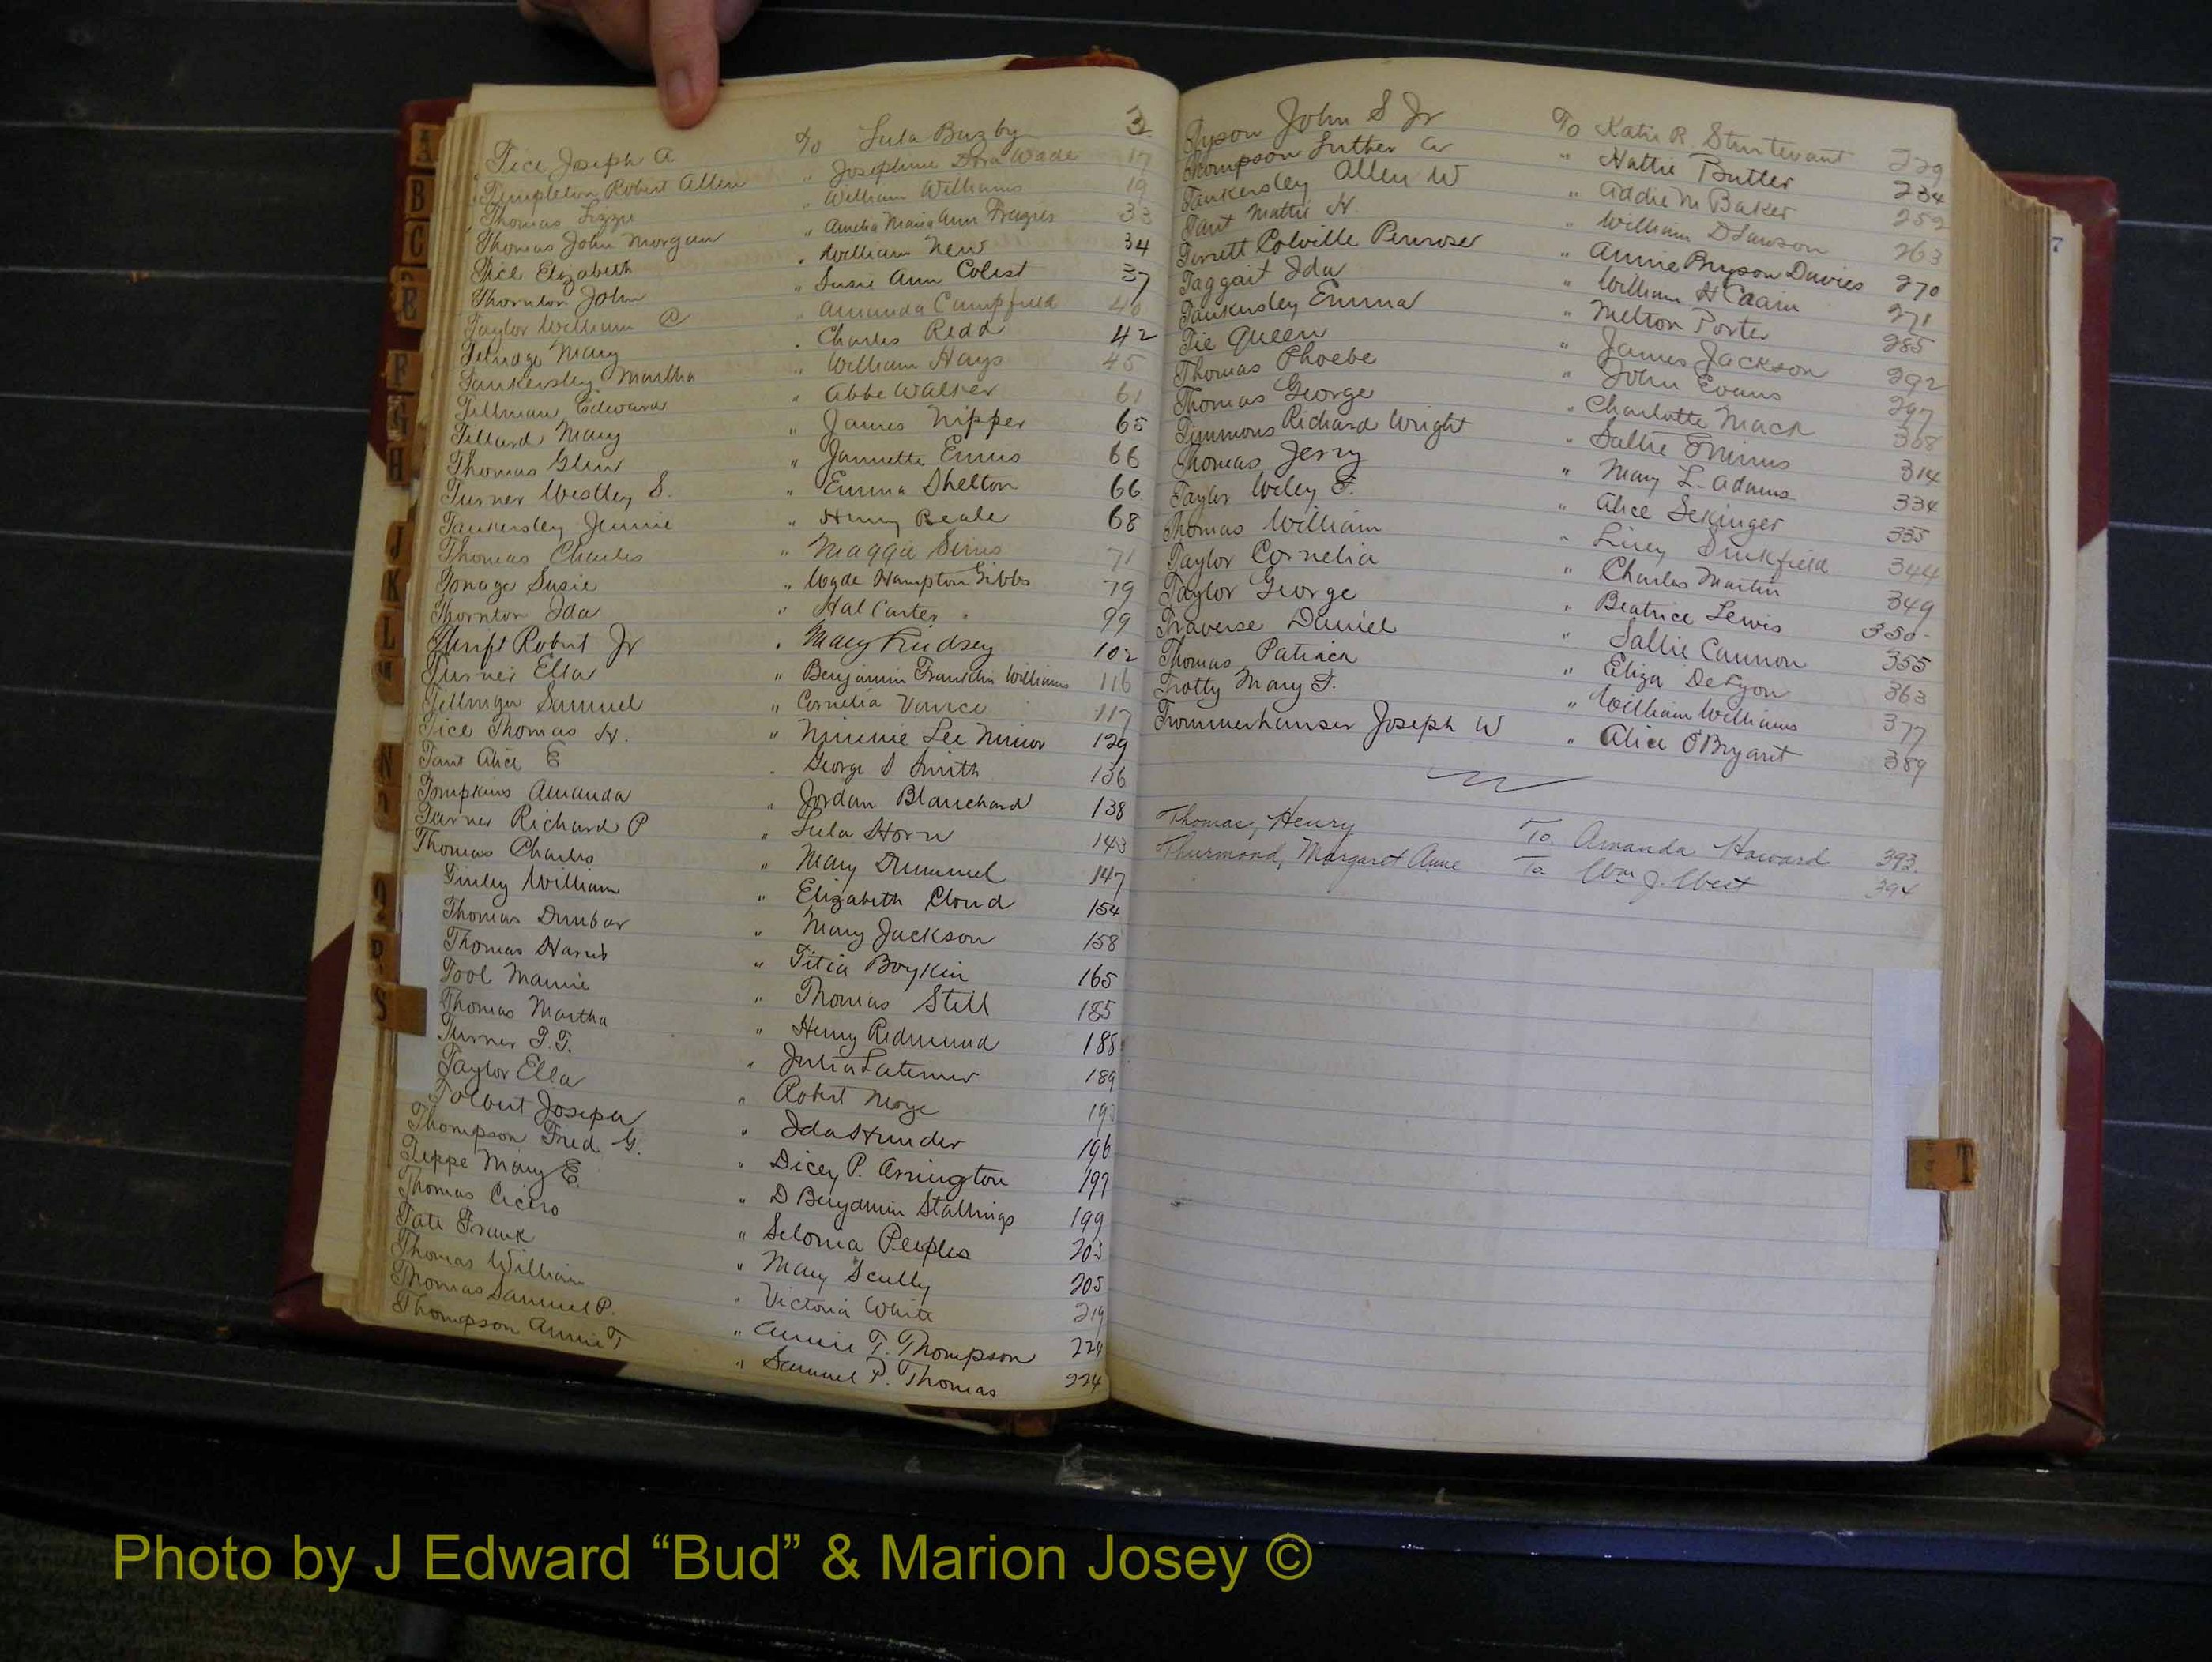 Tice Joseph A to Lula Buzby 3
Templeton Robert Allen " Josephine Dora Wade 17
Thomas Lizzie " William Williams 19
Thomas John Morgan " Amelia Maria Ann Frazier 33
Tice Elizabeth " William New 34
Thornton John " Susie Ann Colist 37
Taylor William @ " Amanda Campfield 40
Telridge Mary " Charles Redd 42
Tankersley Martha " William Hays 45
Tillman Edward " Abbe Walker 61
Tillard Mary " James Nipper 65
Thomas Glen " Jannette Ennis 66
Turner Westley S. " Emma Shelton 66
Tankersley Jennie " Henry Beale 68
Thomas Charles " Maggie Sims 71
Tonage Susie " Wade Hampton Gibbs 79
Thornton Ida " Hal Carter 99
Thrift Robert Jr " Mary Lindsey 102
Turner Ella " Benjamin Franklin Williams 116
Tillinger Samuel " Cornelia Vance 117
Tice Thomas H. " Minnie Lee Minor 129
Tant Alice E " George S Smith 136
Tompkins Amanda " Jordan Blanchard 138
Turner Richard P " Lula Horn 143
Thomas Charles " Mary Drummel 147
Tinley William " Elizabeth Cloud 154
Thomas Dunbar " Mary Jackson 158
Thomas Harris " Titia Boykin 165
Tool Mamie " Thomas Still 185
Thomas Martha " Henry Redmund 188
Turner T.T. " Julia Latimer 189
Taylor Ella " Robert Moye 193
Tolbert Joseph " Ida Hunder 196
Thompson Fred G. " Dicey P. Arrington 197
Teppe Mary E. " D Benjamin Stallings 199
Thomas Cicero " Selonia Peeples 203
Tate Frank " Mary Scully 205
Thomas William " Victoria White 219
Thomas Samuel P. " Annie T. Thompson 224
Thompson Annie T " Samuel P. Thomas 224
Tyson John S Jr To Katie R Sturtevant 229
Thompson Luther W " Hattie Butler 234
Tankersley Allen W " Addie M Baker 252
Tant Mattie H. " William D Lawson 263
Tirrett Colville Penrose " Annie Bryson Davies 270
Taggart Ida " William H Caain 271
Tankersley Emma " Melton Porter 285
Tie Queen " James Jackson 292
Thomas Phoebe " John Evans 297
Thomas George " Charlotte Mack 308
Timmons Richard Wright " Sallie 314
Thomas Jerry " Mary L. Adams 334
Taylor Wiley F. " Alice Sekinger 335
Thomas William " Lucy Sinkfield 344
Taylor Cornelia " Charles Martin 349
Taylor George " Beatrice Lewis 350
Traverse Daniel " Sallie Cannon 355
Thomas Patrick " Eliza DeLyon 363
Trotty Mary F. " William Williams 377
Trommerhauser Joseph W " Alice O'Bryant 389
Thomas, Henry To Amanda Howard 393.
Thurmond, Margaret Anne To Wm J. West 394
B
C
E
F
G
H
J
K
L
M
N
P
S
T
7
Photo by J Edward “Bud” & Marion Josey ©